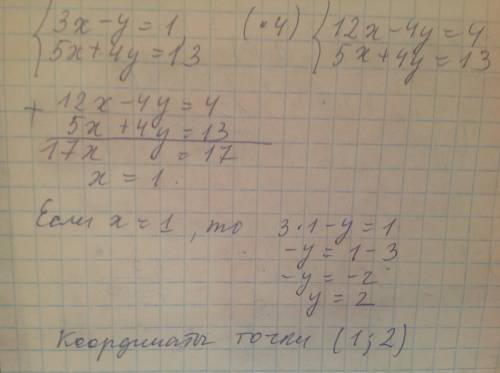 {3x - y = 1 (·4) {12x - 4y = 4
{5x + 4y = 13 {5x + 4y = 13
+ 12x - 4y = 4
5x + 4y = 13
17x = 17
x = 1.
Если x = 1, то 3·1 - y = 1
-y = 1 - 3
-y = -2
y = 2
Координаты точки (1; 2)